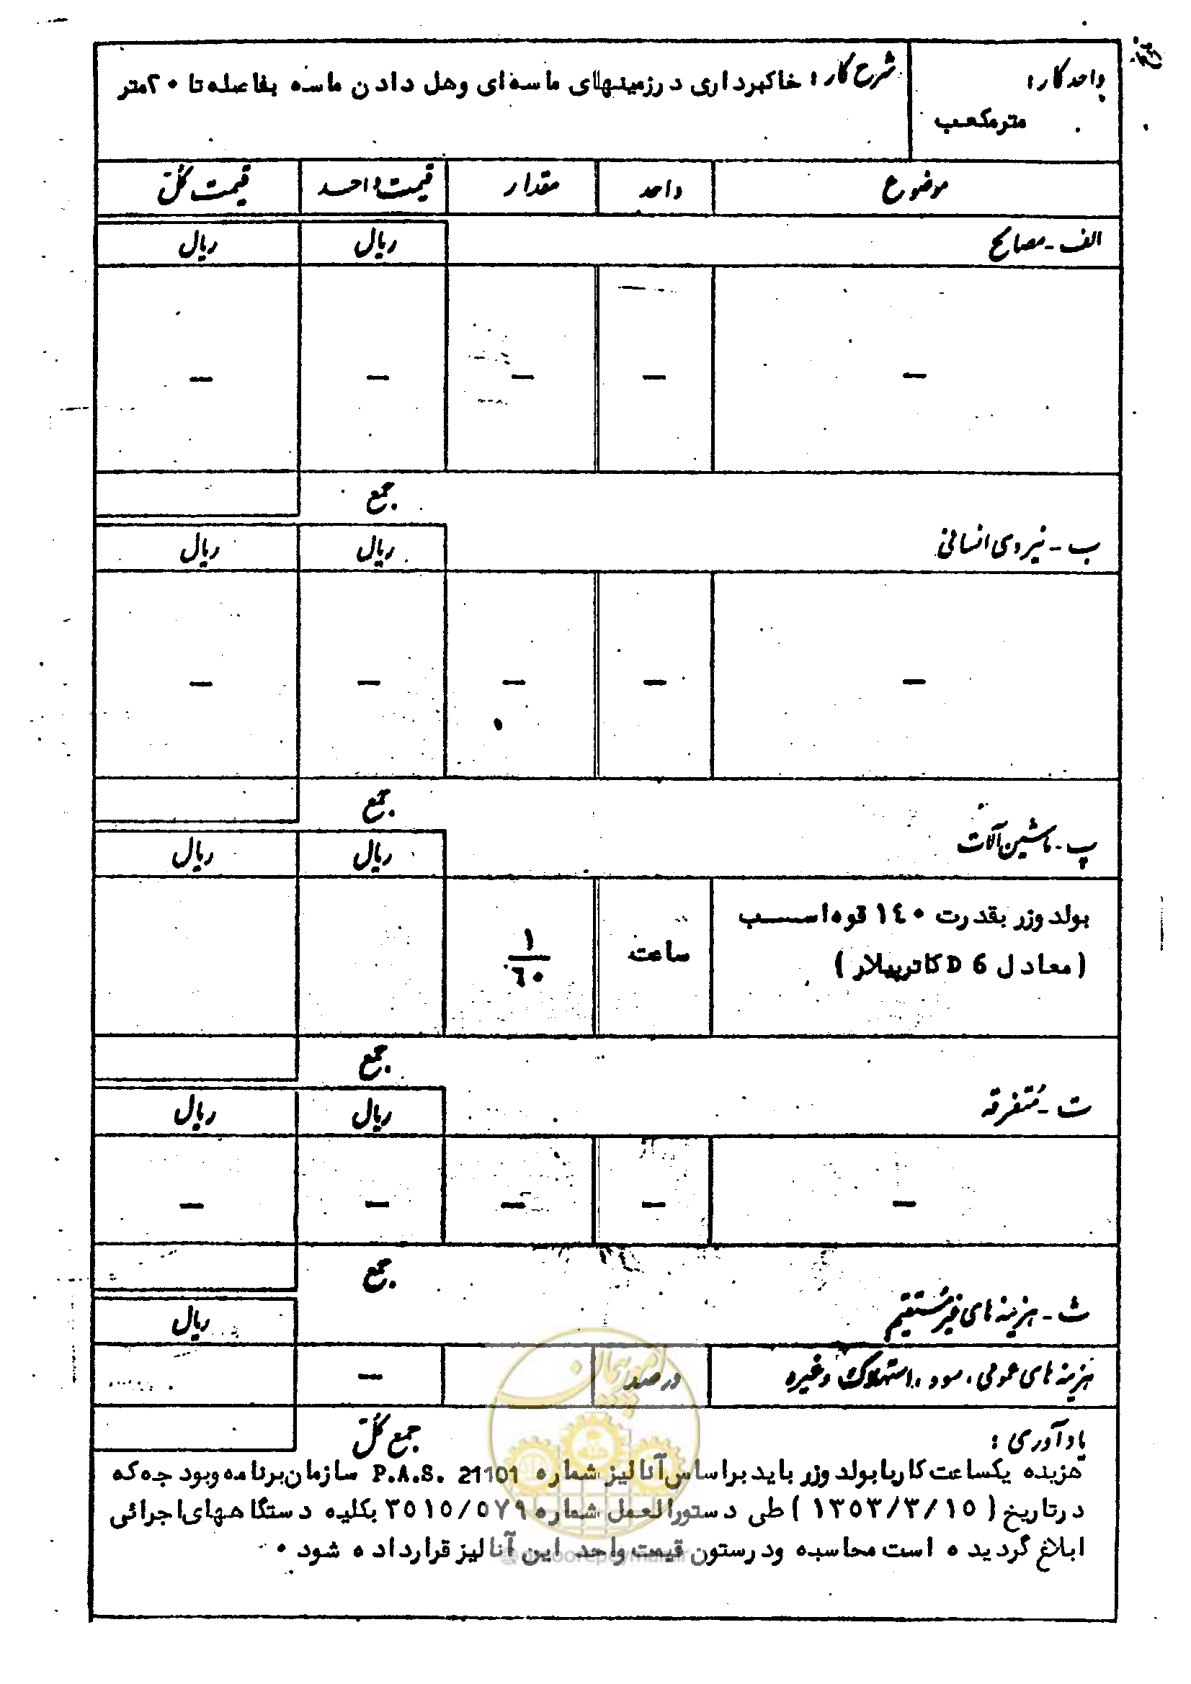 شرح کار : خاکبرداری در زمینهای ماسه‌ای و هل دادن ماسه بفاصله تا ۲۰ متر
واحد کار :
مترمکعب
موضوع واحد مقدار قیمت واحد قیمت کل
الف - مصالح ریال ریال
— — — — —
جمع
ب - نیروی انسانی ریال ریال
— — — — —
جمع
پ - ماشین آلات ریال ریال
بولدوزر بقدرت ۱٤۰ قوه اسب
(معادل D 6 کاترپیلار) ساعت ۱/٦۰
جمع
ت - متفرقه ریال ریال
— — — — —
جمع
ث - هزینه های غیرمستقیم ریال
هزینه های عمومی ، سود ، استهلاک و غیره درصد —
جمع کل
یادآوری :
هزینه یکساعت کار با بولدوزر باید براساس آنالیز شماره P.A.S. 21101 سازمان برنامه و بودجه که
در تاریخ ( ۱۳٥۳/۳/۱٥ ) طی دستورالعمل شماره ۳٥۱٥/٥۷۹ بکلیه دستگاههای اجرائی
ابلاغ گردیده است محاسبه و در ستون قیمت واحد این آنالیز قرار داده شود ۰
امور پیمان